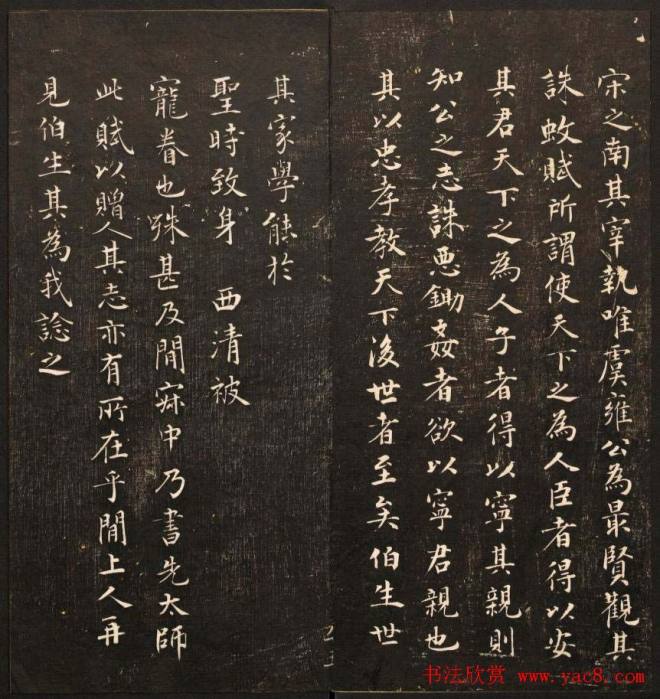 宋之南其宰執唯虞雍公為最賢觀其
誅蚊賦所謂使天下之為人臣者得以安
其君天下之為人子者得以寧其親則
知公之志誅惡鋤姦者欲以寧君親也
其以忠孝教天下後世者至矣伯生世
其家學能於
聖時致身 西清被
寵眷也殊甚及閒寂中乃書先太師
此賦以贈人其志亦有所在乎閒上人再
見伯生其為我諗之
书法欣赏 www.yac8.com